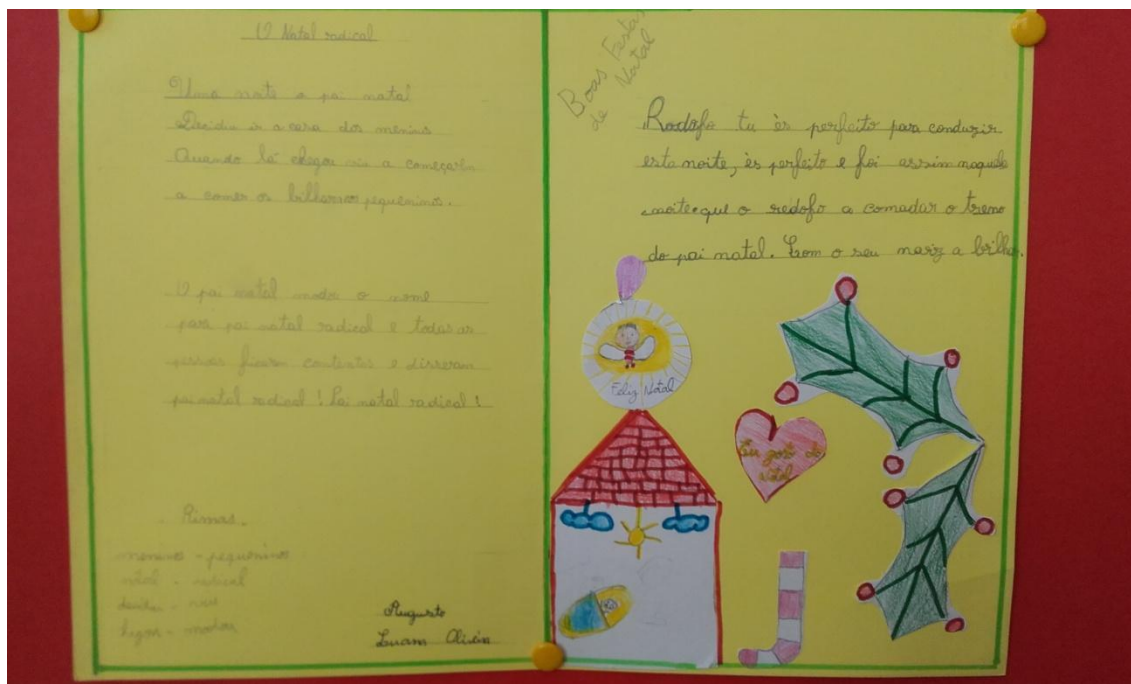 O Natal radical
Uma noite o pai natal
Decidiu ir a casa dos menins
Quando lá chegou viu a começar
a comer os pequeninos.
O pai natal mudou o nome
para pai natal radical e todas as
pessoas ficaram contentes e disseram
pai natal radical! Pai natal radical!
Rimas.
meninos - pequeninos
natal - radical
Augusto
Luam Olivia
Boas Festas
de Natal
Rodofo tu ès perfeito para conduzir
esta noite, ès perfeito e foi assim naquela
noite que o redofo a comadar o treno
do pai natal. Com o seu nariz a brilhar.
Feliz Natal
Eu gosto do
Natal